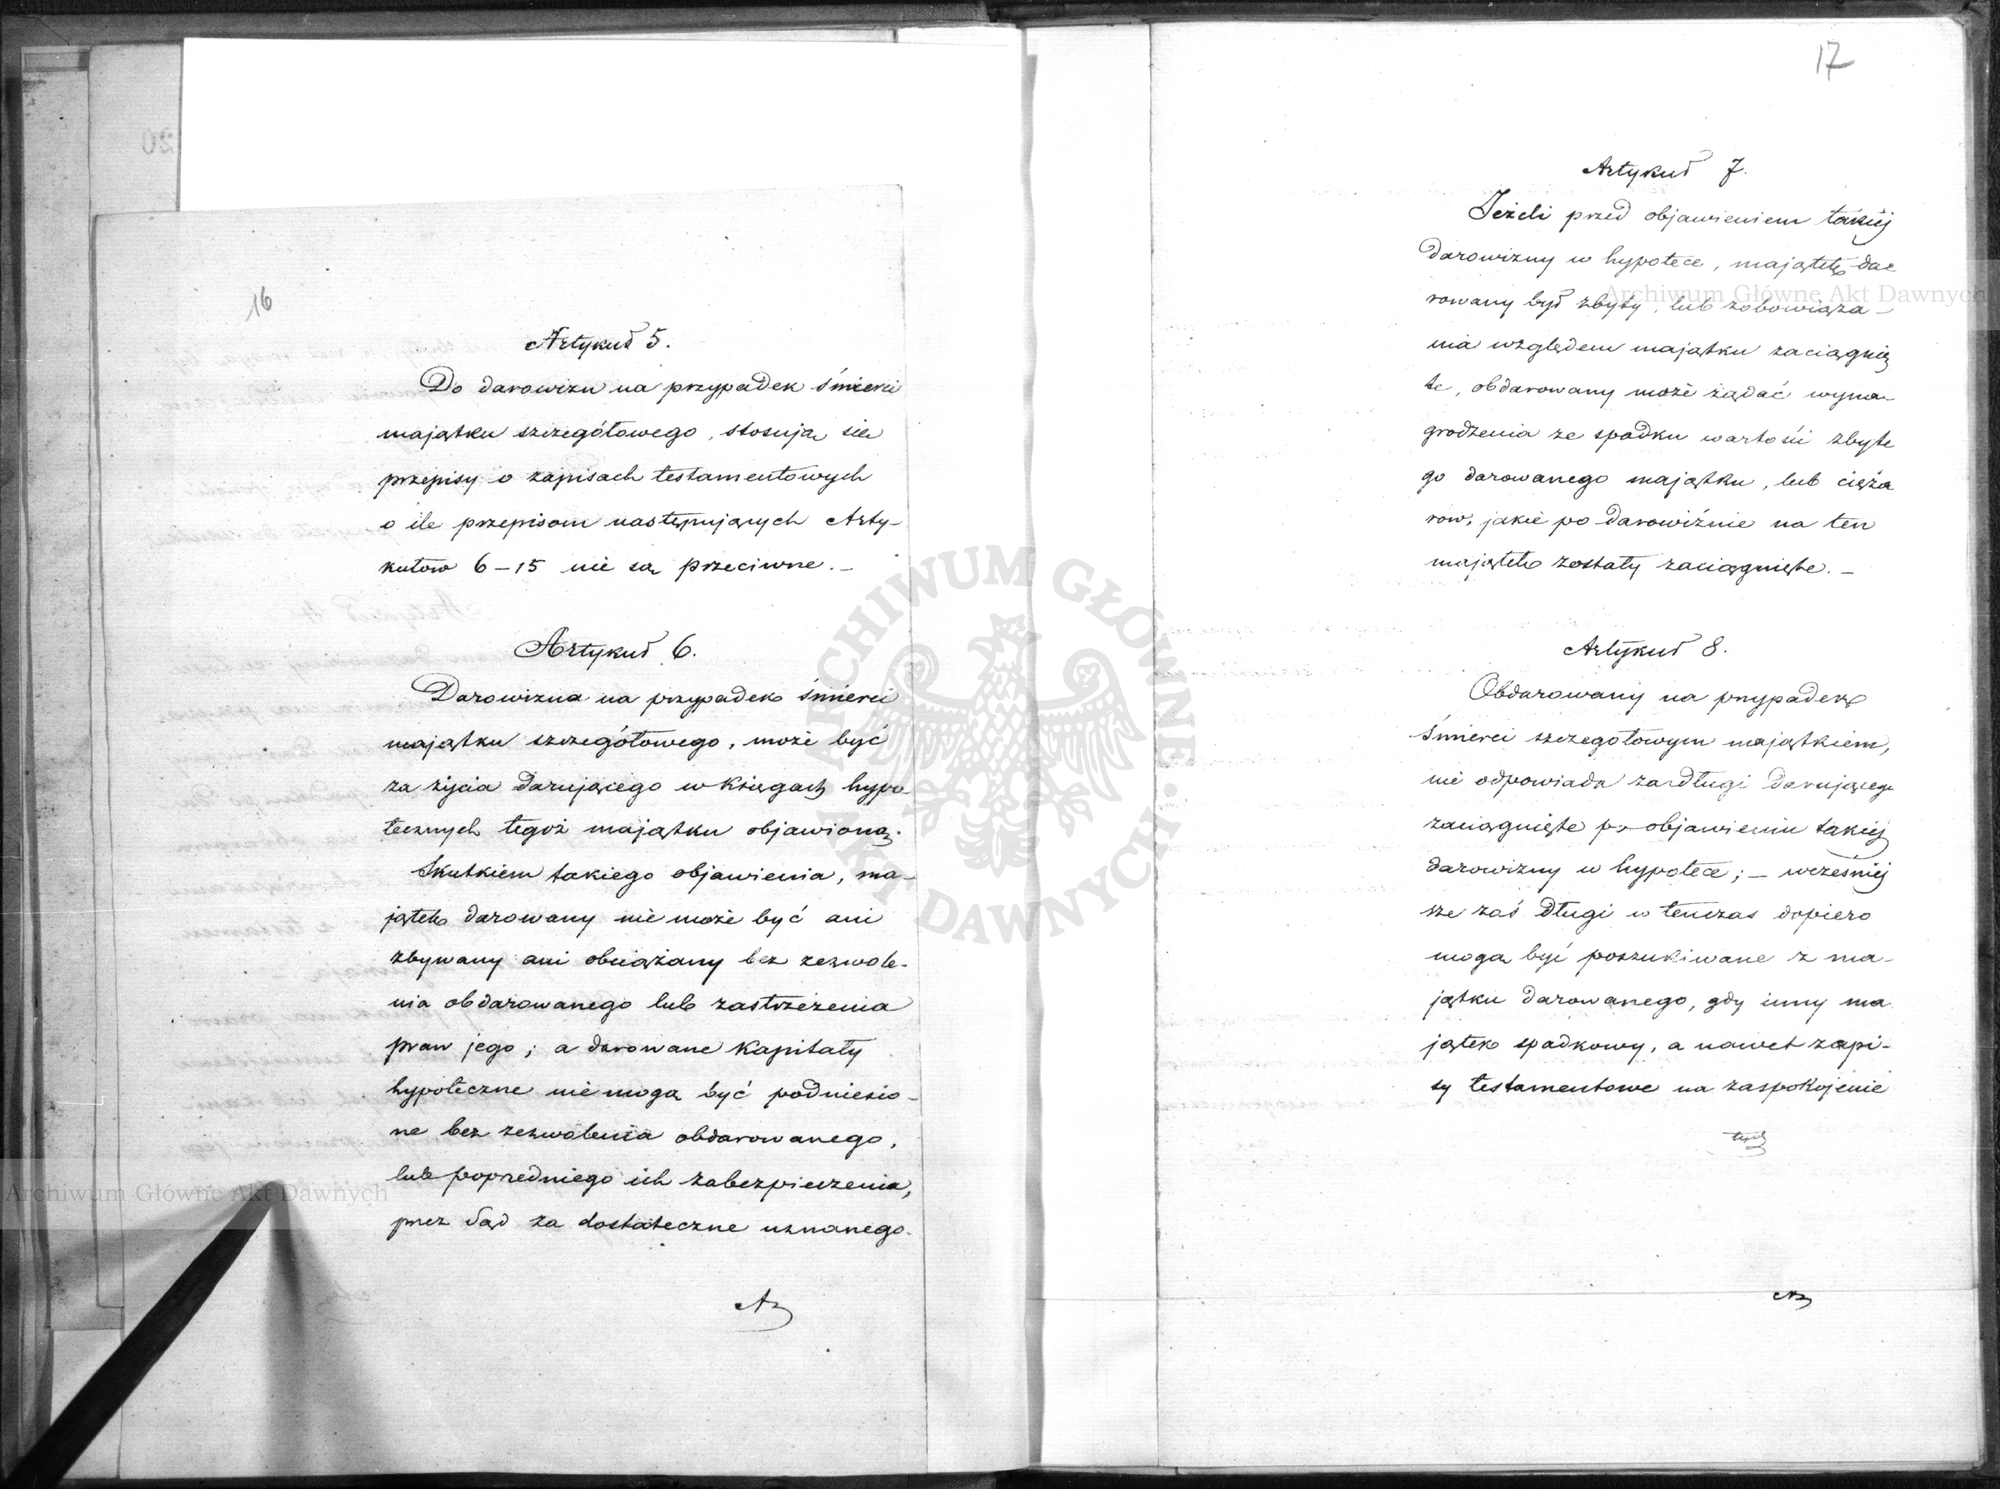 16
Artykuł 5.
Do darowizn na przypadek śmierci
majątku szczegółowego, stosują się
przepisy o zapisach testamentowych
o ile przepisom następujących Arty-
kułów 6–15 nie są przeciwne. –
Artykuł 6.
Darowizna na przypadek śmierci
majątku szczegółowego, może być
za życia darującego w księgach hypo-
tecznych tegoż majątku objawioną.
Skutkiem takiego objawienia, ma-
jątek darowany nie może być ani
zbywany ani obciążany bez zezwole-
nia obdarowanego lub zastrzeżenia
praw jego; a darowane kapitały
hypoteczne nie mogą być podniesio-
ne bez zezwolenia obdarowanego,
lub poprzedniego ich zabezpieczenia,
przez Sąd za dostateczne uznanego.
17
Artykuł 7.
Jeżeli przed objawieniem takiej
darowizny w hypotece, majątek da-
rowany był zbyty, lub zobowiąza-
nia względem majątku zaciągnię
te, obdarowany może żądać wyna-
grodzenia ze spadku wartości zbyte
go darowanego majątku, lub cięża
rów, jakie po darowiźnie na ten
majątek zostały zaciągnięte. –
Artykuł 8.
Obdarowany na przypadek
śmierci szczegółowym majątkiem,
nie odpowiada za długi darującego
zaciągnięte po objawieniu takiej
darowizny w hypotece; – wcześniej
sze zaś długi w tenczas dopiero
mogą być poszukiwane z ma-
jątku darowanego, gdy inny ma
jątek spadkowy, a nawet zapi-
sy testamentowe na zaspokojenie
tych
Archiwum Główne Akt Dawnych
Archiwum Główne Akt Dawnych
ARCHIWUM GŁÓWNE AKT DAWNYCH